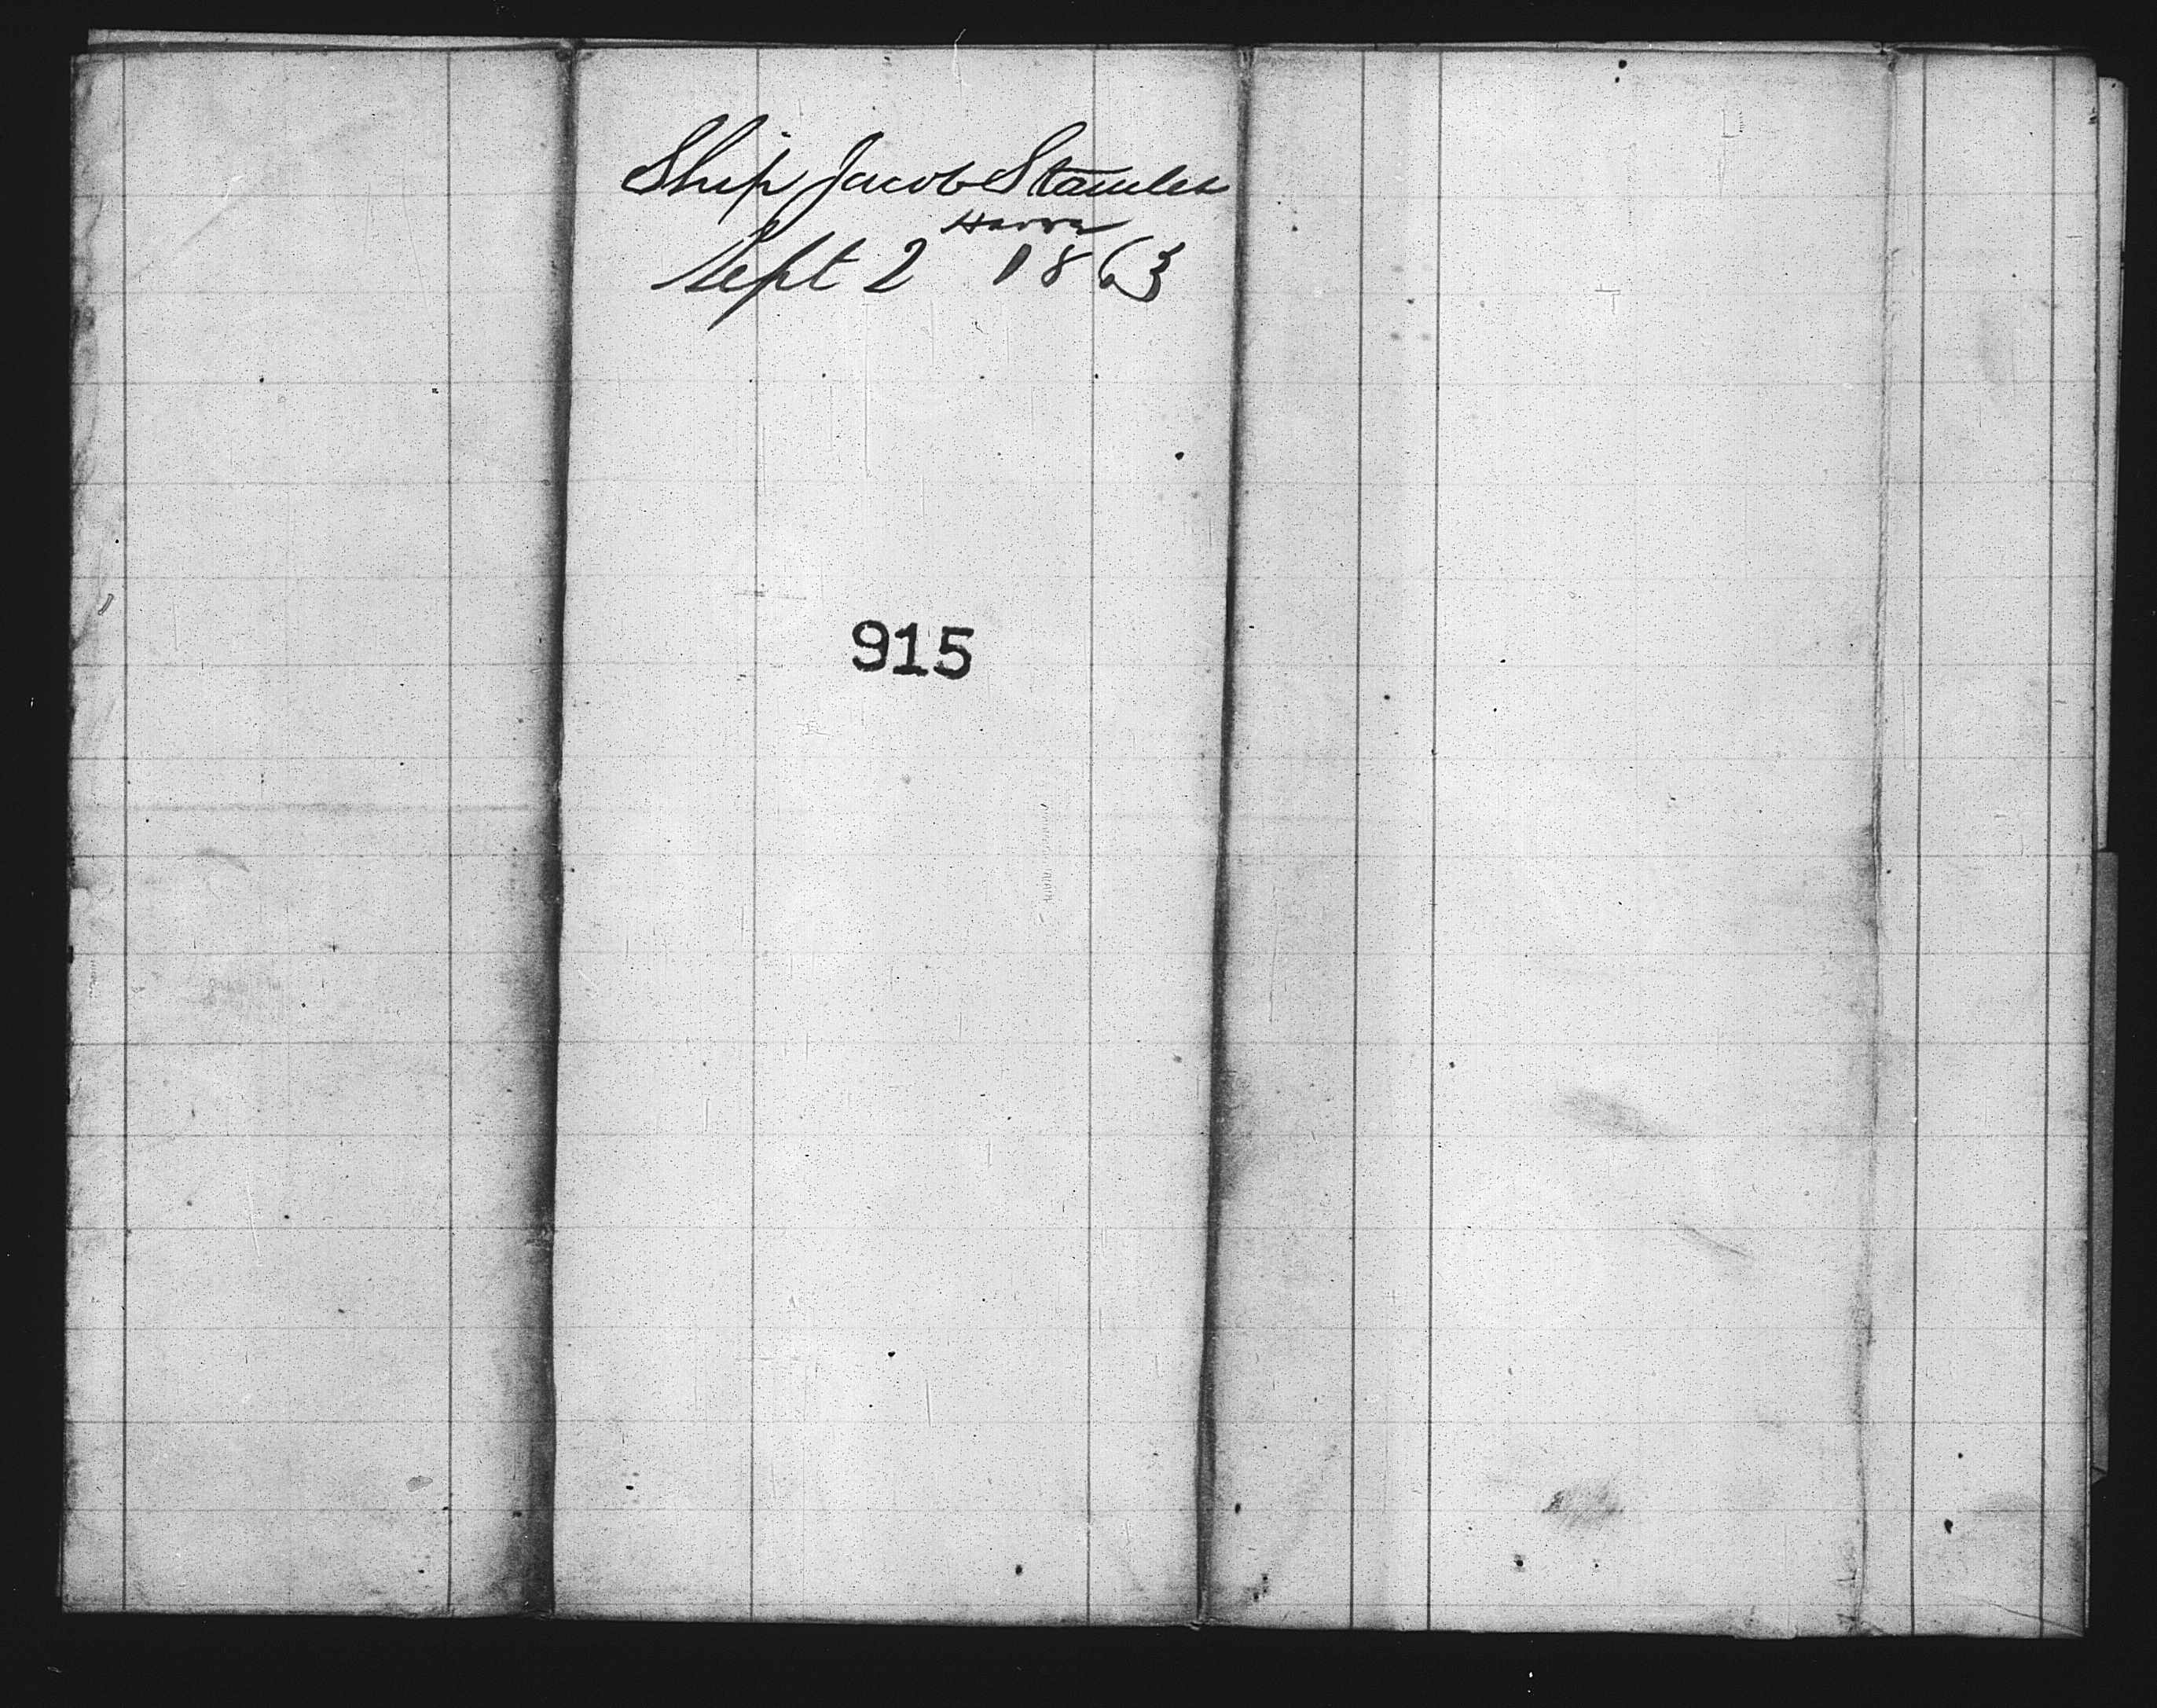 Ship Jacob Stamler
Havre
Sept 2 1863
915